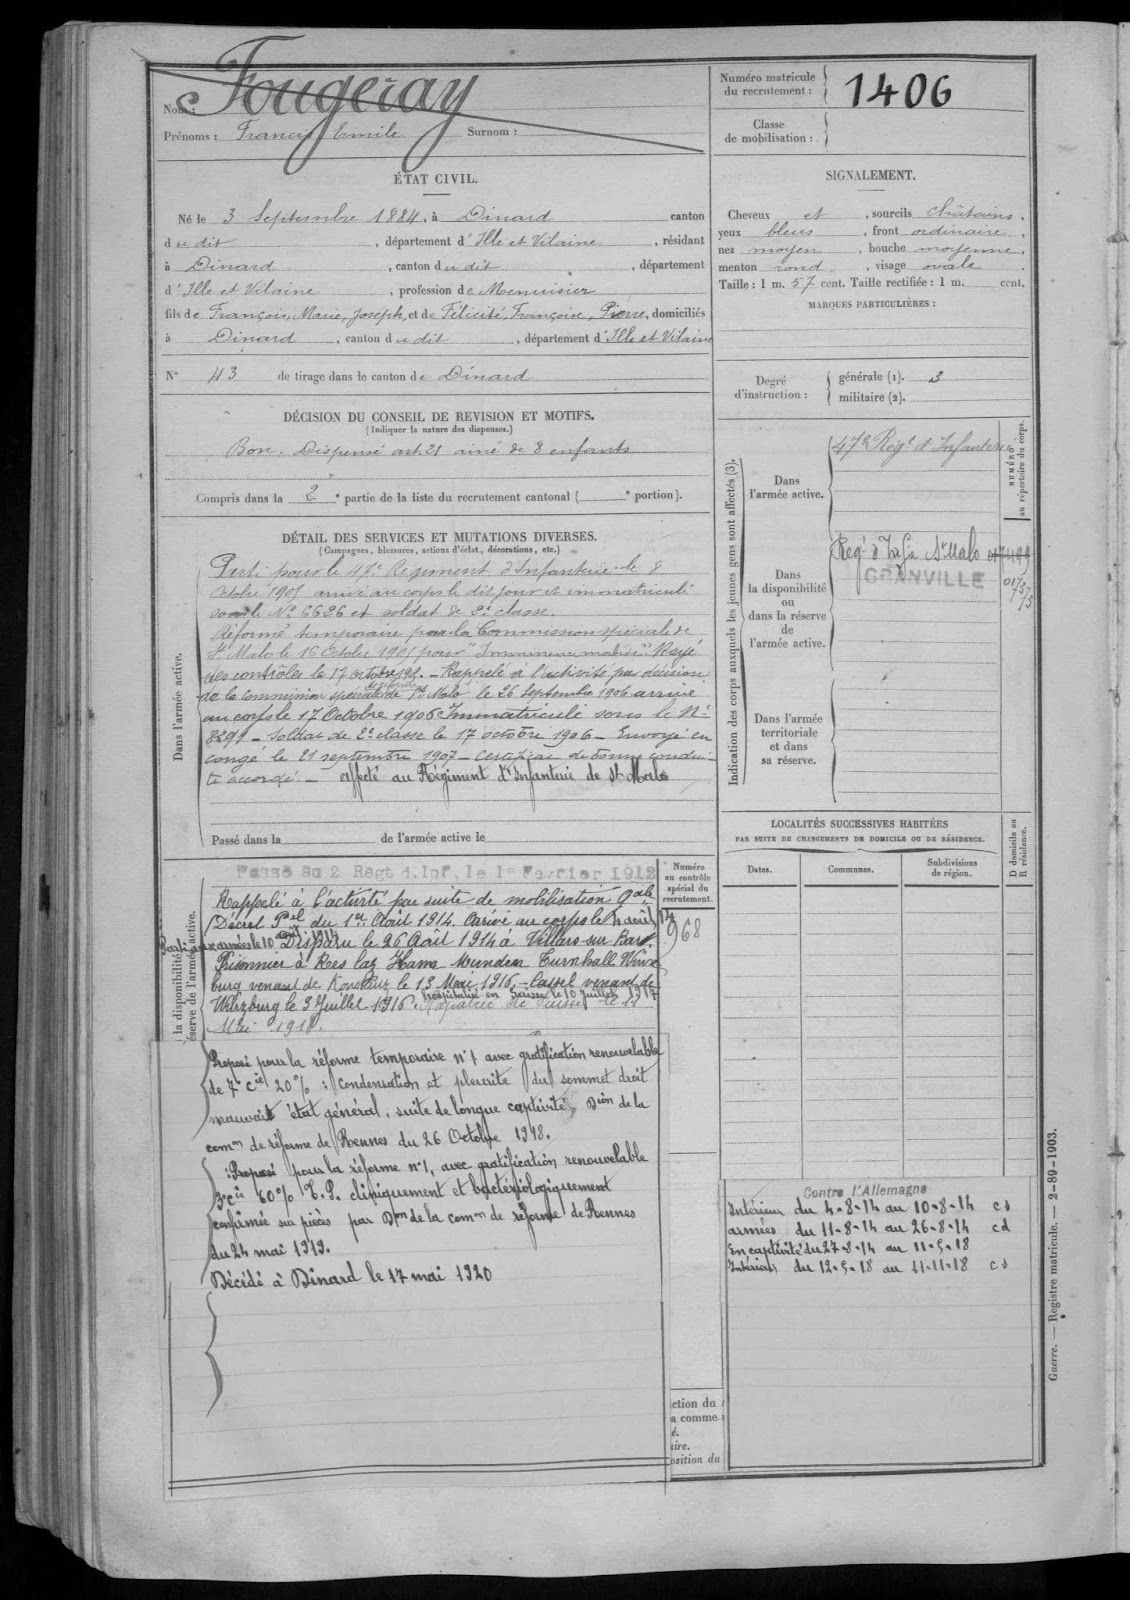 Fougeray
Nom :
Prénoms : Francis Emile Surnom :
Numéro matricule
du recrutement : 1406
Classe
de mobilisation :
ÉTAT CIVIL.
Né le 3 Septembre 1884, à Dinard canton
dudit, département d'Ille et Vilaine, résidant
à Dinard, canton dudit, département
d'Ille et Vilaine, profession de Menuisier
fils de François, Marie, Joseph, et de Félicité, Françoise, Pierre, domiciliés
à Dinard, canton dudit, département d'Ille et Vilaine
N° 43 de tirage dans le canton de Dinard
SIGNALEMENT.
Cheveux et, sourcils châtains,
yeux bleus, front ordinaire,
nez moyen, bouche moyenne,
menton rond, visage ovale.
Taille : 1 m. 57 cent. Taille rectifiée : 1 m. cent.
MARQUES PARTICULIÈRES :
Degré
d'instruction :
générale (1). 3
militaire (2).
DÉCISION DU CONSEIL DE REVISION ET MOTIFS.
(Indiquer la nature des dispenses.)
Bon. Dispensé art. 21 ainé de 8 enfants
Compris dans la 2e partie de la liste du recrutement cantonal ( e portion).
DÉTAIL DES SERVICES ET MUTATIONS DIVERSES.
(Campagnes, blessures, actions d'éclat, décorations, etc.)
Dans l'armée active.
Parti pour le 47e Régiment d'Infanterie le 8
Octobre 1905 arrivé au corps le dit jour et immatriculé
sous le No 6626 et soldat de 2e classe.
Réformé temporaire par la Commission spéciale de
St Malo le 16 Octobre 1905 pour "Imminence morbide". Rayé
des contrôles le 17 octobre 1905. - Rappelé à l'activité par décision
de la Commission spéciale de St Malo le 26 Septembre 1906 arrivé
au corps le 17 Octobre 1906 Immatriculé sous le N°
8291 - Soldat de 2e classe le 17 octobre 1906 - Envoyé en
congé le 21 septembre 1907 - Certificat de bonne condui-
te accordé. - affecté au Régiment d'Infanterie de St Malo
Passé dans la de l'armée active le
Indication des corps auxquels les jeunes gens sont affectés (3).
NUMÉRO
au répertoire du corps.
Dans
l'armée active.
47e Régt d'Infanterie
Dans
la disponibilité
ou
dans la réserve
de
l'armée active.
Reg. d'Inf. St Malo
GRANVILLE
Dans l'armée
territoriale
et dans
sa réserve.
LOCALITÉS SUCCESSIVES HABITÉES
PAR SUITE DE CHANGEMENTS DE DOMICILE OU DE RÉSIDENCE.
D domicile ou
R résidence.
Dates. Communes. Subdivisions
de région.
Numéro
au contrôle
spécial du
recrutement.
968
la disponibilité
réserve de l'armée active.
Passé au 2 Régt d. Inf, le 1er Février 1912
Rappelé à l'activité par suite de mobilisation Gale
Décret Pel du 1er Août 1914. Arrivé au corps le 4 août 14
Parti aux armées le 10 août 1914 Disparu le 26 Août 1914 à Villars sur Bar.
Prisonnier à Rees
burg venant de Konstanz le 13 Mai 1916. - Cassel venant de
Würzburg le 3 Juillet 1916. hospitalisé en Suisse le 10 Juillet 1917
Rapatrié de Suisse le 11
Mai 1918.
Proposé pour la réforme temporaire n° 1 avec gratification renouvelable
de 7e cie 20% : Condensation et pleurite du sommet droit
mauvais état général, suite de longue captivité, Dion de la
comon de réforme de Rennes du 26 Octobre 1918.
Proposé pour la réforme n° 1, avec gratification renouvelable
3e cie 60% T.P. cliniquement et bactériologiquement
confirmée sur pièces par Don de la comon de réforme de Rennes
du 24 mai 1919.
Décédé à Dinard le 17 mai 1920
Contre l'Allemagne
Intérieur du 4-8-14 au 10-8-14 cs
armées du 11-8-14 au 26-8-14 cd
En captivité du 27-8-14 au 11-5-18
Intérieur du 12-5-18 au 11-11-18 cs
ction du
a comme
é.
ire.
osition du
Guerre. — Registre matricule. — 2-89-1903.